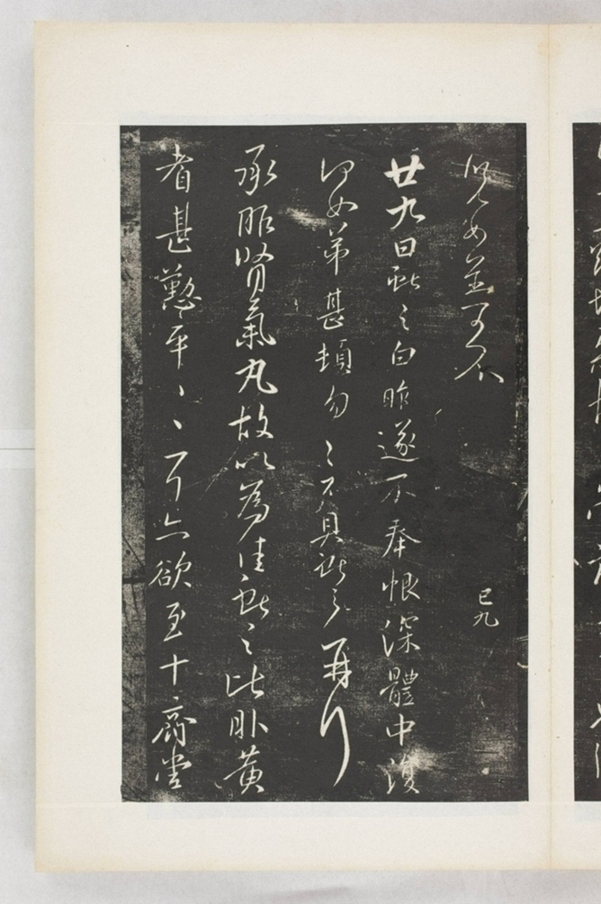 兒女並可不
廿九日獻之白昨遂不奉恨深體中復
何如弟甚頓勿勿不具獻之再拜
承服腎氣丸故以為佳獻之比服黃
耆甚懃平平耳亦欲至十齋當
已九